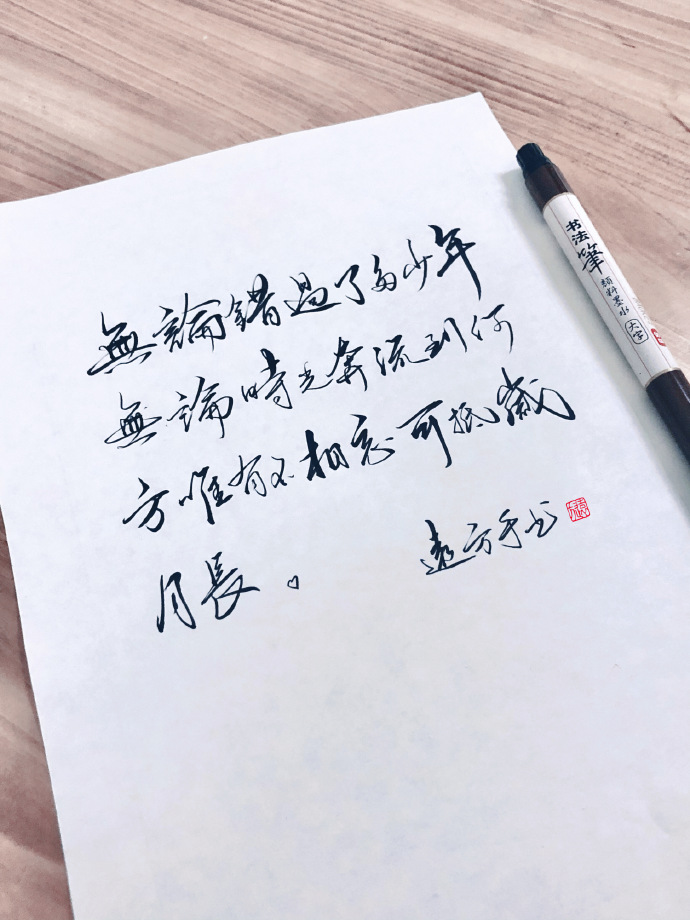 無論錯過了多少年
無論時光奔流到何
方唯有不相忘可抵歲
月長。
遠方手书
书法筆
顏料墨水
大字